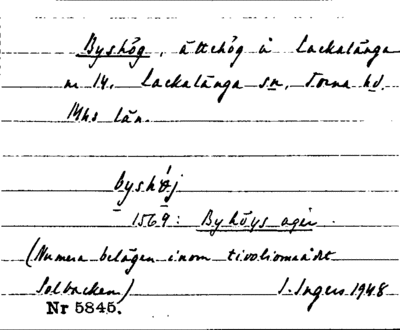 Byshög, ättehög å Lackalänga
nr 14. Lackalänga sn, Torna hd.
Mhs län.
byshøj
1569: Byhöys ager.
(Numera belägen inom tivoliområdet
Solbacken) I. Ingers 1948
Nr 5845.